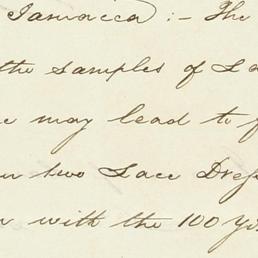 Jamaica :- The
the samples of La
may lead to f
two Lace Dres
with the 100 Y